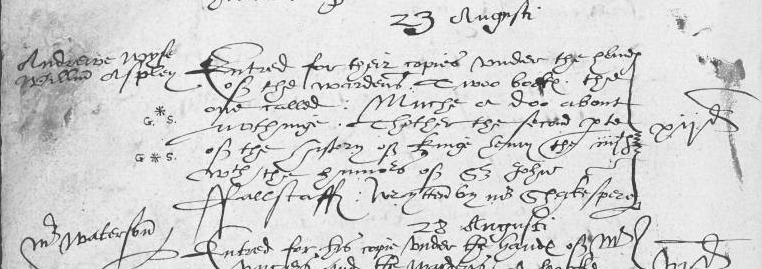 23 Augusti
Andrewe Wyse Entred for their copies vnder the handes
William Aspley of the wardens. Twoo bookes. the
one called: Muche a doo about
G * S. nothinge. Thother the second pte
G * S. of the history of Kinge Henry the iiijth xijd
wth the humors of Sr John
Ffallstaff: Wrytten by mr Shakespere
28 Augusti
Mr Waterson Entred for his copie vnder the handes of Mr
and the wardens